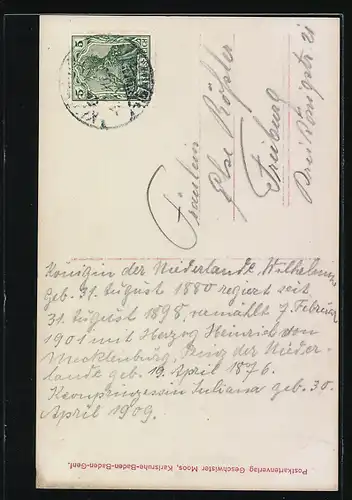 Fräulein
Else Rößler
Freiburg
Dreikönigstr. 21
Königin der Niederlande, Wilhelmina
geb. 31. August 1880 regiert seit
31. August 1898, vermählt 7. Februar
1901 mit Herzog Heinrich von
Mecklenburg, Prinz der Nieder-
lande geb. 19. April 1876.
Kronprinzessin Juliana geb. 30.
April 1909.
Postkartenverlag Geschwister Moos, Karlsruhe-Baden-Baden-Genf.
5
5